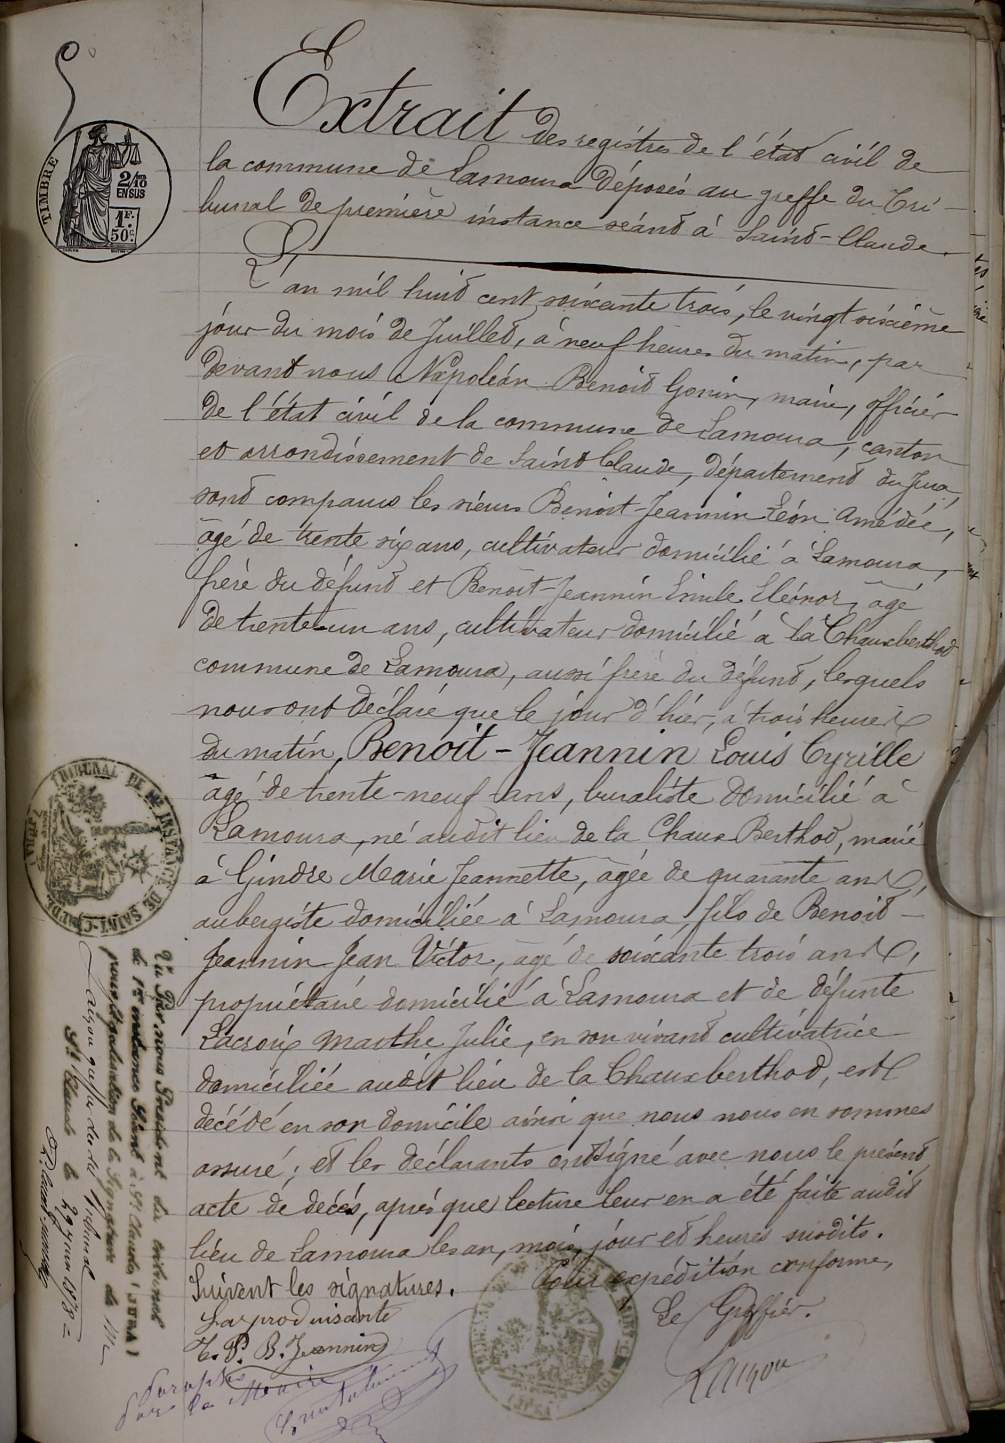 Extrait des registres de l'état civil de
la commune de Lamoura déposés au greffe du Tri-
bunal de première instance séant à Saint-Claude.
TIMBRE
2/10
EN SUS
1F.
50c.
L'an mil huit cent soixante trois, le vingt sixième
jour du mois de Juillet, à neuf heures du matin, par
devant nous Napoléon Benoit Gonin, maire, officier
de l'état civil de la commune de Lamoura, canton
et arrondissement de Saint Claude, département du Jura,
sont comparus les sieurs Benoit-Jeannin Léon Amédée,
âgé de trente six ans, cultivateur domicilié à Lamoura,
frère du défunt et Benoit-Jeannin Emile Eléonor, âgé
de trente-un ans, cultivateur domicilié à la Chauxberthod
commune de Lamoura, aussi frère du défunt, lesquels
nous ont déclaré que le jour d'hier, à trois heures
du matin, Benoit-Jeannin Louis Cyrille
âgé de trente-neuf ans, buraliste domicilié à
Lamoura, né audit lieu de la Chaux Berthod, marié
à Gindre Marie Jeannette, âgée de quarante ans,
aubergiste domiciliée à Lamoura, fils de Benoit-
Jeannin Jean Victor, âgé de soixante trois ans,
propriétaire domicilié à Lamoura et de défunte
Lacroix Marthe Julie, en son vivant cultivatrice
domiciliée audit lieu de la Chauxberthod, est
décédé en son domicile ainsi que nous nous en sommes
assuré; et les déclarants ont signé avec nous le présent
acte de décès, après que lecture leur en a été faite audit
lieu de Lamoura les an, mois, jour et heures susdits.
Suivent les signatures. Pour expédition conforme,
Le Greffier.
La produisante
B. Jeannin
TRIBUNAL DE 1re INSTANCE DE SAINT-CLAUDE
Vu Par nous Président du tribunal
de 1re instance séant à St Claude (JURA)
pour légalisation de la Signature de Mr
St Claude le
Paraphé
Par le Maire